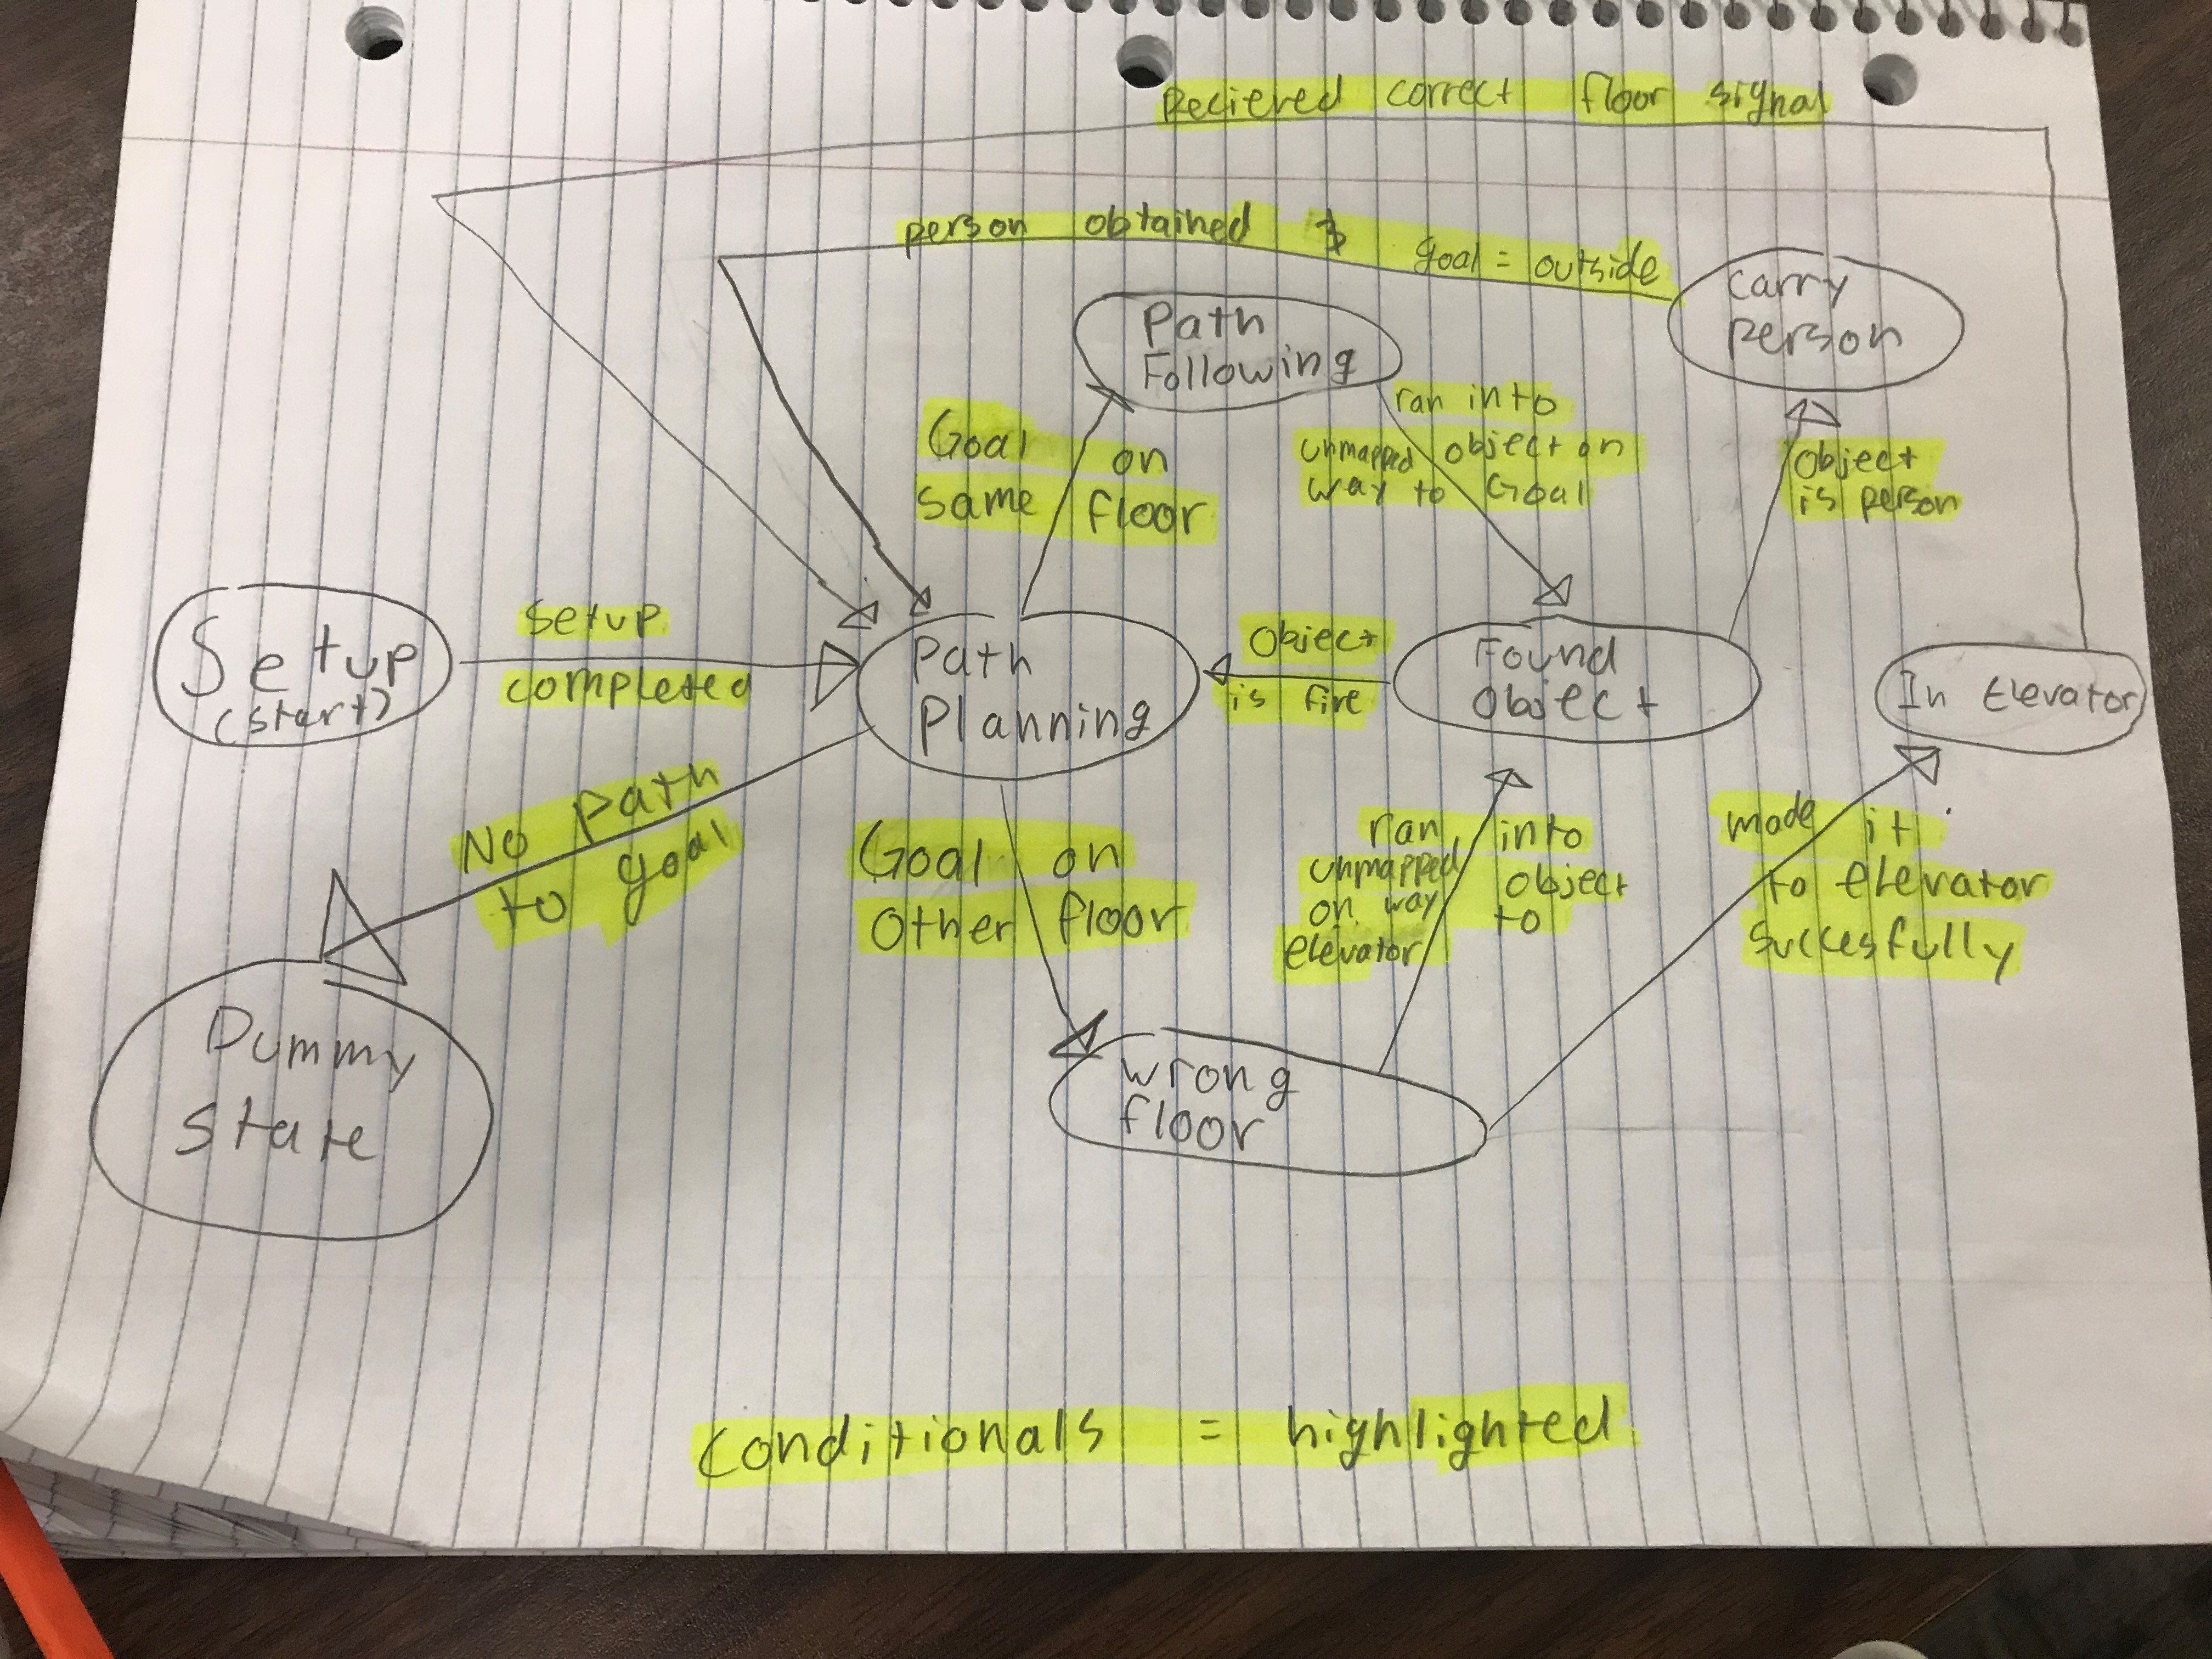 Recieved correct floor signal
person obtained & goal = outside
carry
person
Path
Following
ran into
unmapped object on
way to Goal
Goal on
same floor
object
is person
Setup
(start)
setup
completed
Path
Planning
Object
is fire
Found
Object
In Elevator
No path
to goal
Goal on
Other floor
ran into
unmapped object
on way to
elevator
made it
to elevator
succesfully
Dummy
State
wrong
floor
conditionals = highlighted